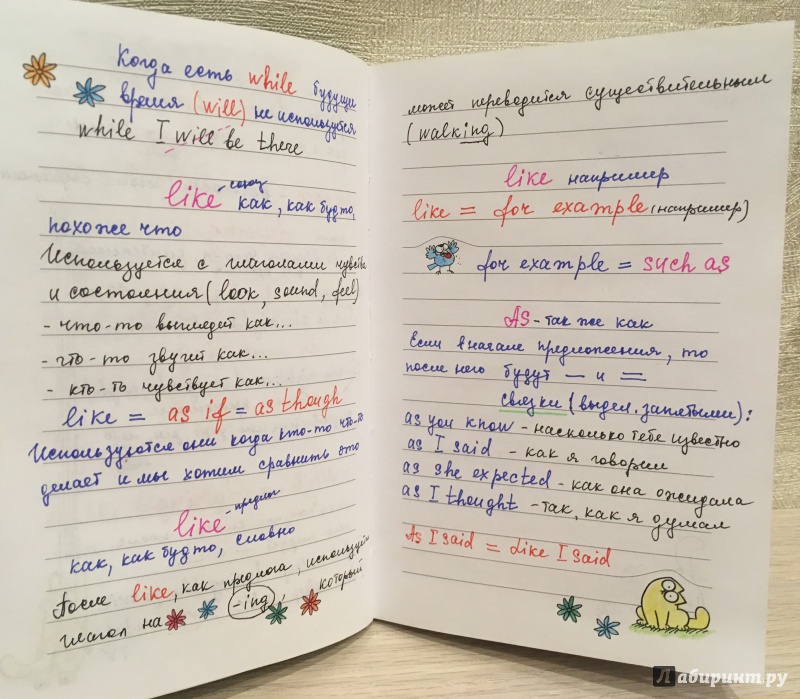 Когда есть while будущее
время (will) не используется
while I will be there
like - союз как, как будто,
похоже что
Используется с глаголами чувства
и состояния (look, sound, feel)
- что-то выглядит как...
- что-то звучит как...
- кто-то чувствует как...
like = as if = as though
Используются они когда кто-то что-то
делает и мы хотим сравнить это
like - предлог
как, как будто, словно
После like, как предлога, используем
глагол на -ing, который
может переводится существительным
(walking)
like например
like = for example (например)
for example = such as
As - так же как
Если вначале предложения, то
после него будут — и =
связки (выдел. запятыми):
as you know - насколько тебе известно
as I said - как я говорил
as she expected - как она ожидала
as I thought - так, как я думал
As I said = Like I said
Лабиринт.ру